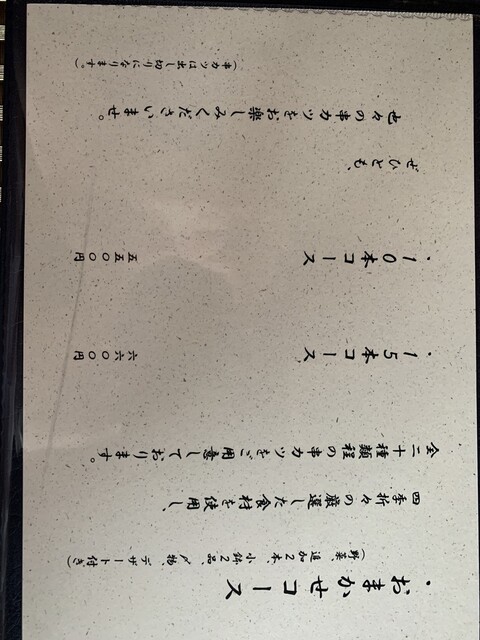 ・おまかせコース
(野菜、追加2本、小鉢2品、〆物、デザート付き)
四季折々の厳選した食材を使用し、
全三十種類程の串カツをご用意しております。
・15本コース
六六〇〇円
・10本コース
五五〇〇円
ぜひとも、
也々の串カツをお楽しみくださいませ。
(串カツは出し切りになります。)